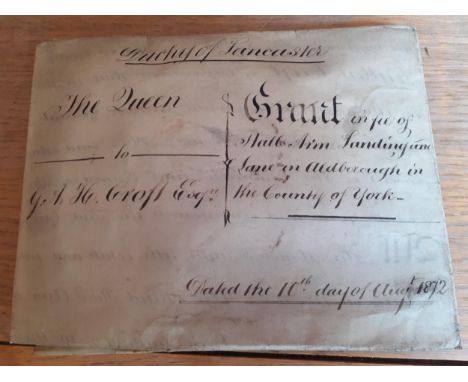 Duchy of Lancaster
The Queen
to
G. A. H. Croft Esqre
Grant in fee of
Halls Arm Landing and
Lane in Aldborough in
the County of York
Dated the 10th day of Augt 1872